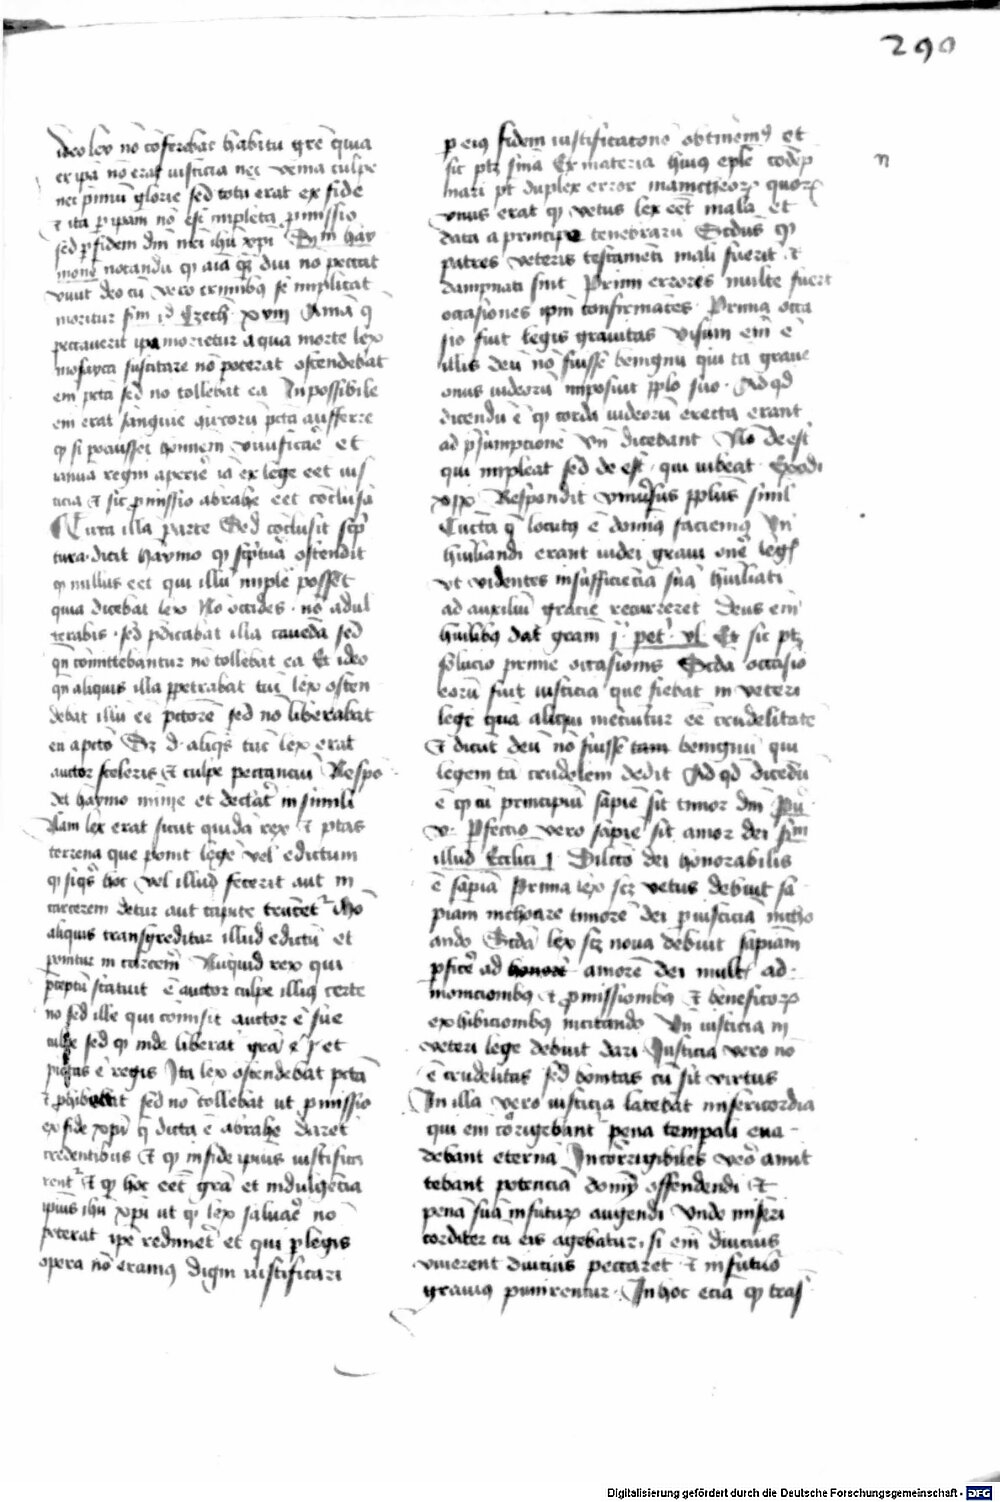 290
ideo lex nō cōferebat habitū gr̄e quia
ex ipa nō erat iusticia nec venia culpe
nec p̄miū glorie sed totū erat ex fide
⁊ ita p ipam nō est impleta p̄missio
sed p fidem dn̄i nr̄i ihū xp̄i hay
mone notandū qꝫ aīa dū nō peccat
viuit deo cū vero crimībꝫ se implicat
moritur sm̄ id Ezech xviij Anīa q̄
peccauerit ipa morietur a qua morte lex
mosayca suscitare nō poterat ostendebat
em̄ pctā sed nō tollebat ea Inpossibile
em̄ erat sanguīe hircorū pctā aufferre
qꝫ si potuisset hominem viuificare et
ianua regni aperire iā ex lege eēt ius
ticia ⁊ sic p̄missio abrahe eēt cōclusa
Circa illa parte Sed cōclusit sc̄p
tura dicit haymo qꝫ scptura ostendit
qꝫ nullus eēt qui illū imple posset
quia dicebat lex Nō occides · nō adul
terabis · sed p̄dicabat illa cauēda sed
qn̄ cōmittebantur nō tollebat ea Et ideo
qn̄ aliquis illa ppetrabat tūc lex osten
debat illū eē pctōrē sed nō liberabat
eū a pctō S d· aliq̄s tūc lex erat
auctor sceleris ⁊ culpe peccanciū Respō
det haymo mīme et declāt in simili
Nam lex erat sicut quidā rex ⁊ ptās
terrena que ponit legē vel edictum
qꝫ siq̄s hoc vel illud fecerit aut in
carcerem detur aut capite truncet
aliquis transgreditur illud edictū et
ponitur in carcerē Nūquid rex qui
p̄ceptū statuit ē auctor culpe illiꝰ certe
nō sed ille qui cōmisit auctor ē sue
culpe sed qꝫ inde liberat grā et
pietas ē regis Ita lex ostendebat pctā
⁊ phibebat sed nō tollebat ut p̄missio
ex fide xp̄i q̄ dicta ē abrahe daret
credentibus ⁊ qꝫ in fide ipius iustifica
rent ⁊ qꝫ hoc eēt grā et indulgēcia
ipius ihū xp̄i ut qꝫ lex saluare nō
poterat ipe redimet et qui p legis
opera nō eramꝰ digni iustificari
p eiꝰ fidem iustificationē obtinemꝰ et
sic ptꝫ sn̄ia Ex materia huiꝰ eple
mari pt duplex error manicheorꝫ quorꝫ
vnus erat qꝫ vetus lex eēt mala et
data a principe tenebrarū Scdus qꝫ
patres veteris testamēti mali fuerīt ⁊
dampnati sint Primi errores multe fuerūt
occasiones ipm confirmātes · Prima occa
sio fuit legis grauitas visum em̄ ē
illis deū nō fuisse benignū qui tā graue
onus iudeorū imposuit pplo suo · Ad qd
dicendū ē qꝫ corda iudeorū erecta erant
ad psumptionē vn̄ dicebant Nō deest
qui impleat sed deest · qui iubeat · Exodi
xix Respondit vniuersus pplus simul
Cūcta q̄ locutꝰ ē dominꝰ faciemꝰ vn̄
humiliandi erant iudei graui onē legis
vt videntes insufficiēcia suā humiliati
ad auxiliū gracie recurrerēt Deus em̄
humilibꝫ dat grām j· pet· v Et sic ptꝫ
solucio prime occasionis Scda occasio
eorū fuit iusticia que fiebat in veteri
lege quā aliqui mētiūtur eē crudelitatē
⁊ dicūt deū nō fuisse tam benignū qui
legem tā crudelem dedit Ad qd dicēdū
ē qꝫ cū principiū sapiē sit timor dn̄i
Pfectio vero sapie sit amor dei sm̄
illud Ecclīci j Dilectio dei honorabilis
ē sapiā Prima lex scꝫ vetus debuit sa
piam inchoare timorē dei p iusticia incho
ando Scda lex scꝫ noua debuit sapiam
pficē ad honorē amorē dei mult ad
monicionibꝫ ⁊ p̄missionibꝫ ⁊ beneficiorꝫ
exhibicionibꝫ incitando vn̄ iusticia in
veteri lege debuit dari Iusticia vero nō
ē crudelitas sed bonitas cū sit virtus
In illa vero iusticia latebat misericordia
qui em̄ corrigebant pena tempali eua
debant eterna Incorrigibiles vero amit
tebant potencia domꝫ offendendi ⁊
penā suā in futurꝫ augendi vnde miseri
corditer cū eis agebatur, si em̄ diucius
viuerent diucius peccarēt ⁊ in futuro
grauiꝰ punirentur · In hoc eciā qꝫ tras
Digitalisierung gefördert durch die Deutsche Forschungsgemeinschaft - DFG